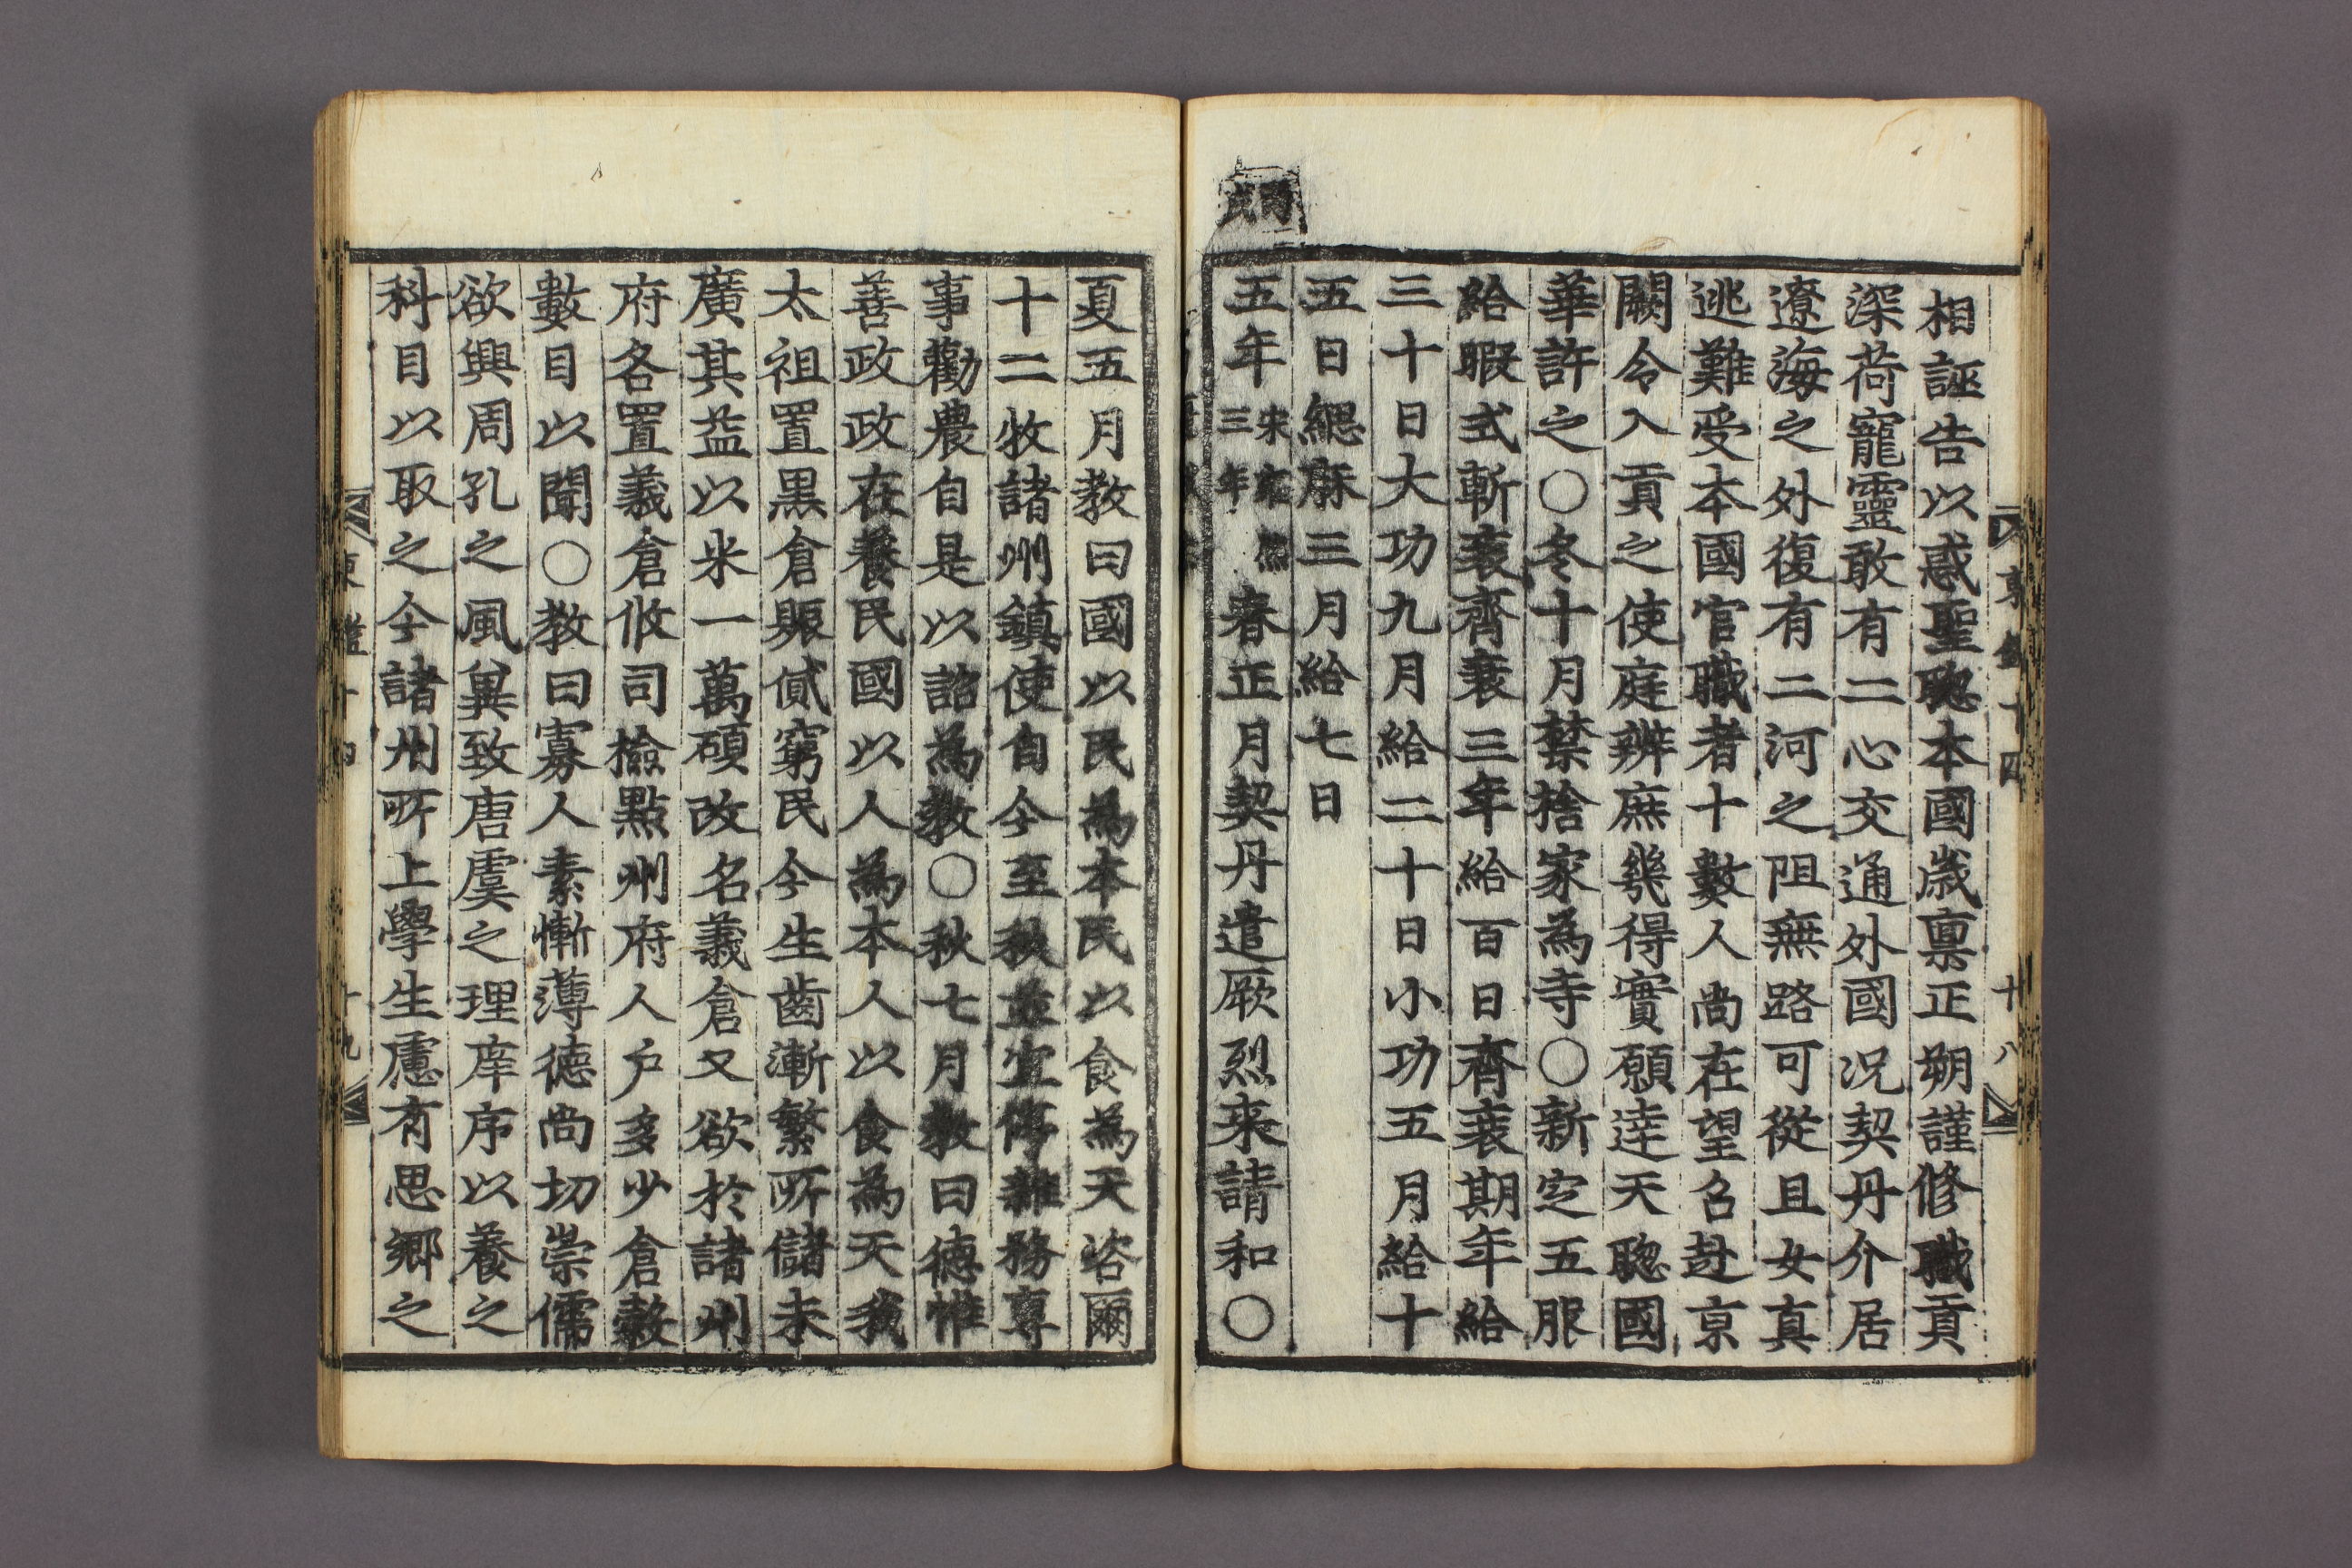 相誣告以惑聖聦本國歲禀正朔謹修職貢
深荷寵靈敢有二心交通外國况契丹介居
遼海之外復有二河之阻無路可從且女真
逃難受本國官職者十數人尚在望召赴京
闕令入貢之使庭辨庶幾得實願逹天聦國
華許之〇冬十月禁捨家為寺〇新定五服
給暇式斬衰齊衰三年給百日齊衰期年給
三十日大功九月給二十日小功五月給十
五日緦麻三月給七日
丙戌
五年宋雍熈三年春正月契丹遣厥烈来請和〇
夏五月教曰國以民為本民以食為天咨爾
十二牧諸州鎮使自今至秋並宜停雜務專
事勸農自是以詔為教〇秋七月教曰德惟
善政政在養民國以人為本人以食為天我
太祖置黒倉賑貸窮民今生齒漸繁所儲未
廣其益以米一萬碩改名義倉又欲於諸州
府各置義倉攸司檢點州府人户多少倉穀
數目以聞〇教曰寡人素慚薄德尚切崇儒
欲興周孔之風兾致唐虞之理庠序以養之
科目以取之今諸州所上學生慮有思鄉之
東鑑十四
十八
十九